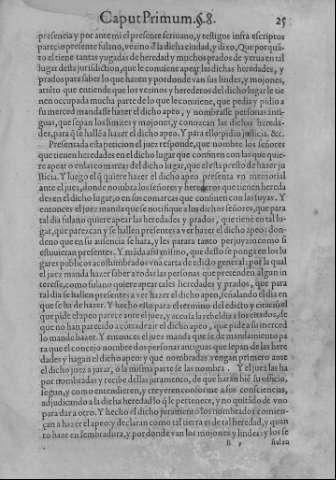 Caput Primum. §. 8. 25
presencia y por ante mi el presente scriuano, y testigos infra escriptos
parecio presente fulano, vezino d'la dicha ciudad, y dixo, Que por quã-
to el tiene tantas yugadas de heredad y muchos prados de yerua en tal
lugar desta jurisdiction, que le conuiene apear las dichas heredades, y
prados para saber lo que hazen y por donde van sus lindes, y mojones,
atẽto que entiende que los vezinos y herederos del dicho lugar le tie-
nen occupada mucha parte de lo que le conuiene, que pedia y pidio a
su merced mandasse hazer el dicho apeo, y nombrasse personas anti-
guas, que sepan los lindes y mojones, y conozcan las dichas hereda-
des, para q̃ se hallẽ a hazer el dicho apeo. Y para ello pidio justicia. &c.
Presentada esta peticion el juez responde, que nombre los señores
que tienen heredades en el dicho lugar que confinen con las que quie-
re apear o en las comarcas del dicho lugar, que el esta presto de hazer ju
sticia. Y luego el q̃ quiere hazer el dicho apeo presenta vn memorial
ante el juez, donde nombra los señores y herederos que tienen hereda
des en el dicho lugar, o en sus comarcas que confinen con las suyas. Y
entonces el juez manda que se notifique a los dichos señores, que para
tal dia fulano quiere apear las heredades y prados, que tiene en tal lu-
gar, que parezcan y se hallen presentes a ver hazer el dicho apeo: don-
de no que en su ausencia se hara, y les parara tanto perjuyzio como si
estuuieran presentes. Y mãda assi mismo, que desto se ponga en los lu
gares publicos acostumbrados vna carta de edicto general: por la qual
el juez manda hazer saber a todas las personas que pretenden algun in
teresse, como fulano quiere apear tales heredades y prados, que para
tal dia se hallen presentes a ver hazer el dicho apeo, señalando el dia en
que se ha de hazer. Y hecho esto passa el termino del edicto y citacion
que pide el apeo parece ante el juez, y accusa la rebeldia a los citados, de
que no han parecido a contradezir el dicho apeo, que pide a su merced
lo mande hazer. Y entonces el juez manda que se de mandamiento pa
ra que el concejo nombre dos personas antiguas que sepan de las here
dades y hagan el dicho apeo: y que nombradas vengan primero ante
el dicho juez a jurar, o la misma parte se las nombra. Y el juez las ha
por nombradas y recibe dellas juramento, de que haran biẽ su officio,
segun, y como entendieren, y creyeren conforme a sus consciencias,
adjudicando a la dicha heredad lo q̃ le pertenece, y no quitãdo de vno
para dar a otro. Y hecho el dicho juramento los nombrados comien-
çan a hazer el apeo: y declaran como tal tierra es de tal heredad, y quan
to haze en sembradura, y por donde van los mojones y lindes: y los se